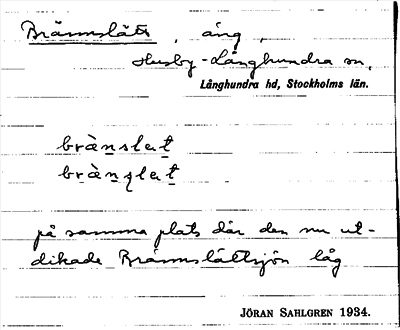 Brännslätt, äng,
Husby-Långhundra sn,
Långhundra hd, Stockholms län.
brænslet
brænslet
på samma plats där den nu ut-
dikade Brännslättsjön låg
JÖRAN SAHLGREN 1934.